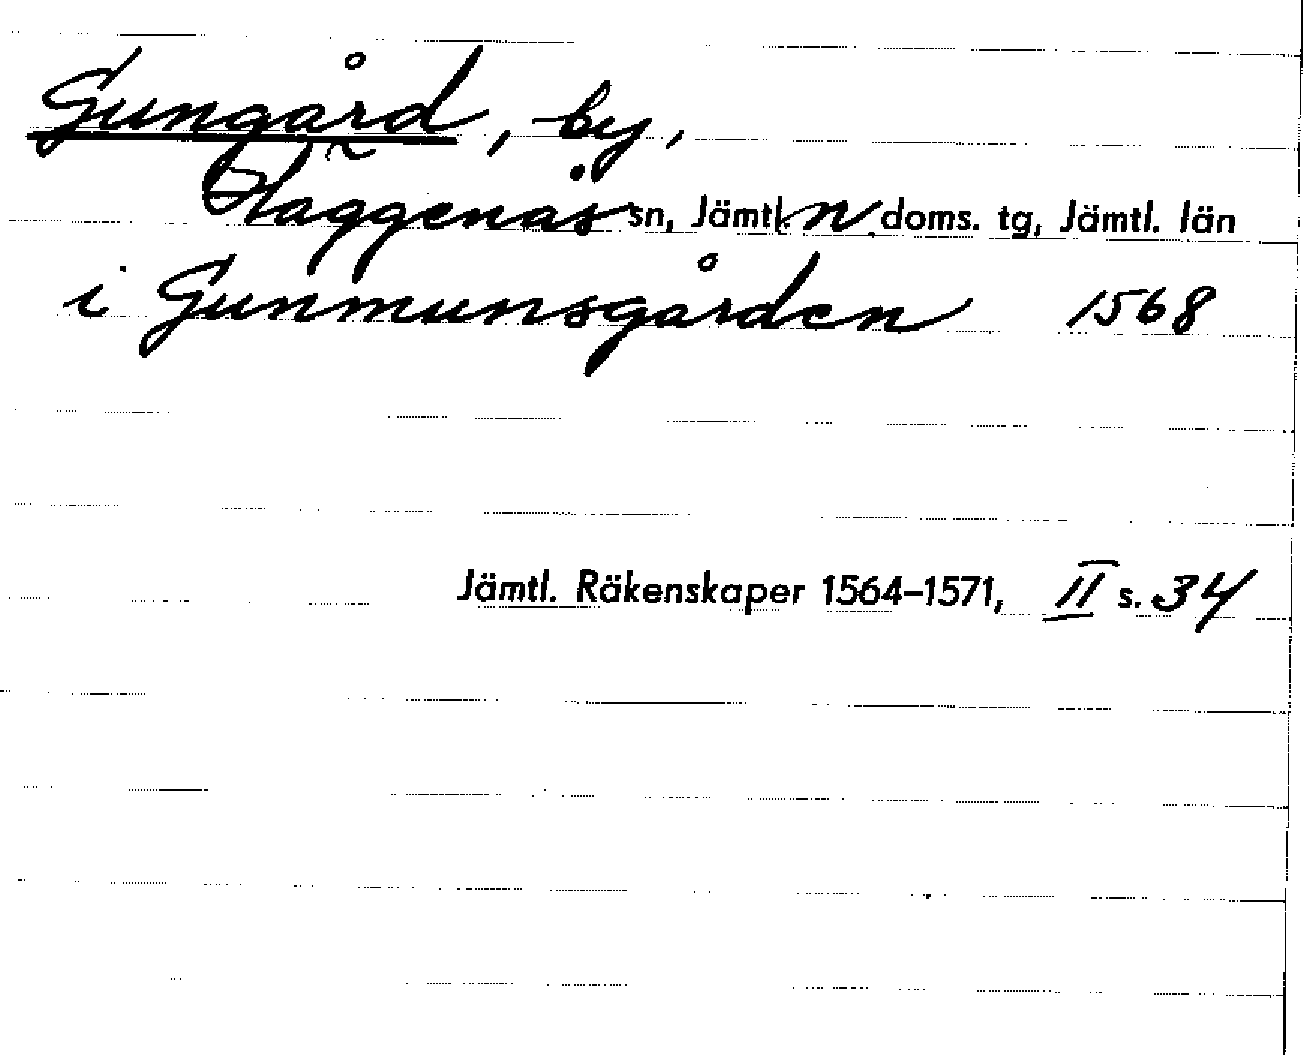 Gungård, by,
Häggenås sn, Jämtl. n doms. tg, Jämtl. län
i Gunmunsgården 1568
Jämtl. Räkenskaper 1564–1571, II s. 34